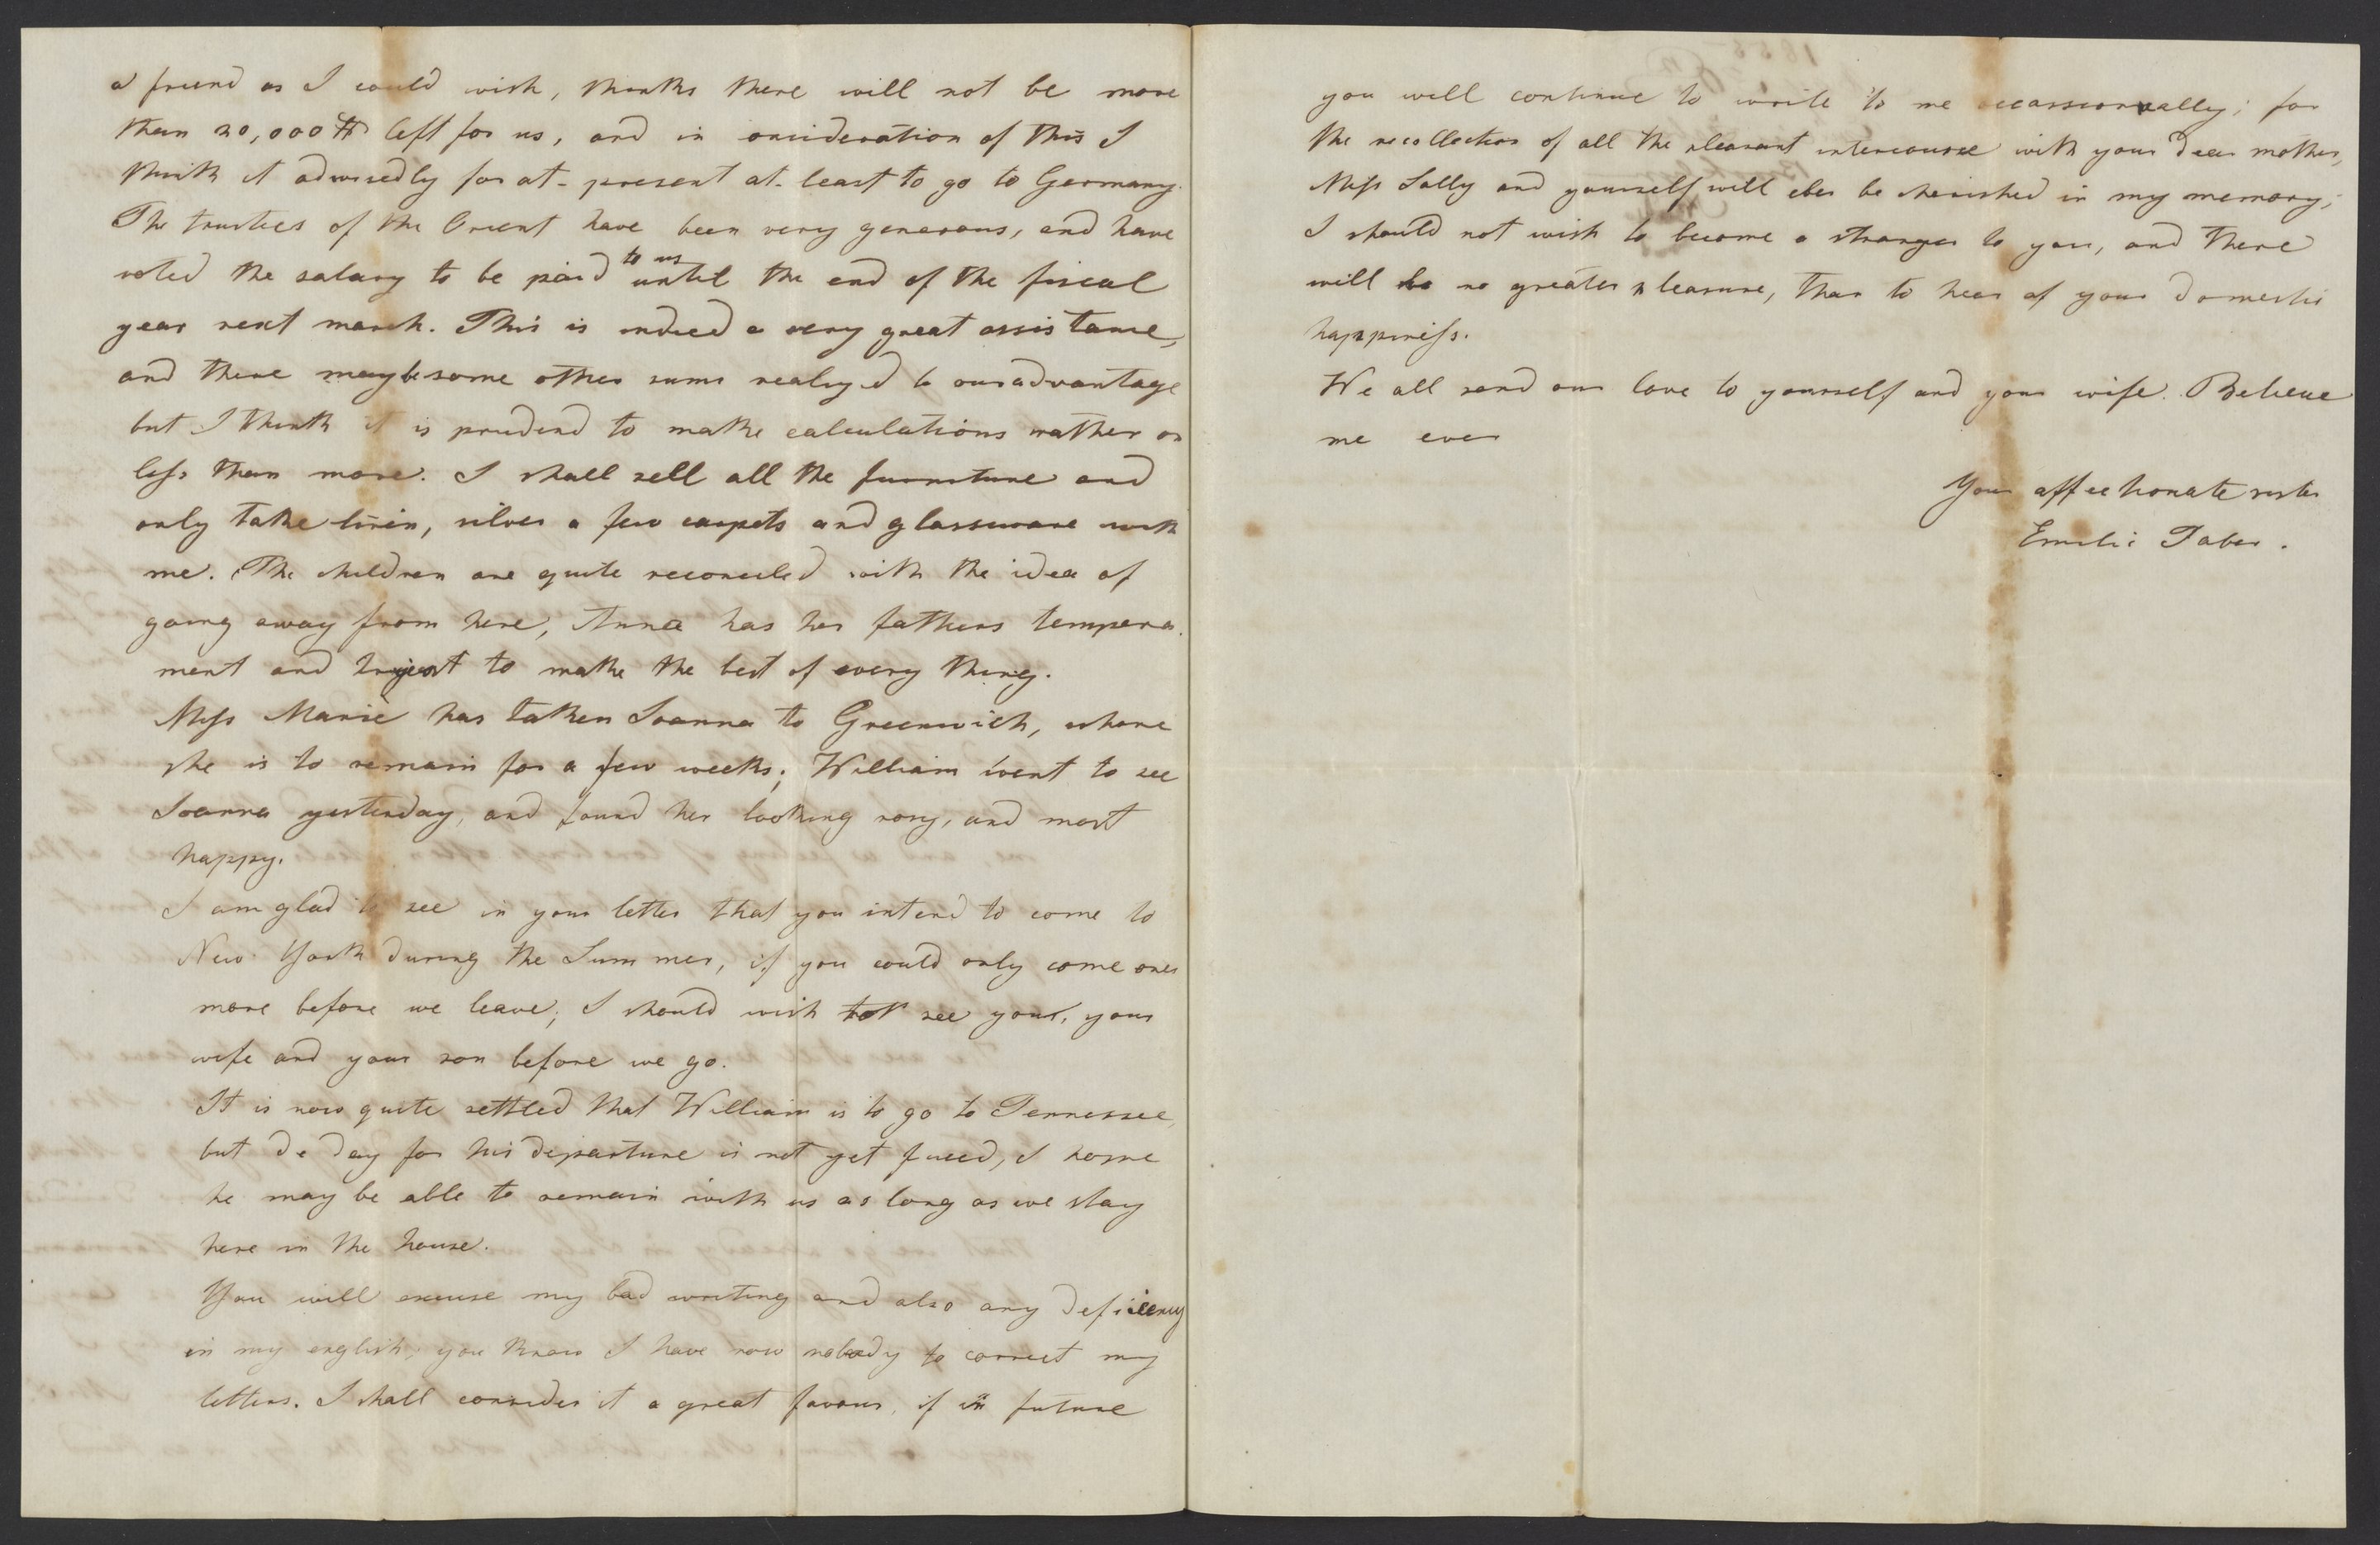 a friend as I could wish, thinks there will not be more
than 20,000 $ left for us, and in onsideration of this I
think it advisedly for at-present at-least to go to Germany.
The trustees of the Orient have been very generous, and have
voted the salary to be paid to us until the end of the fiscal
year next march. This is indeed a very great assistance,
and there may be some other sums realized to our advantage
but I think it is prudend to make calculations rather on
less than more. I shall sell all the furniture and
only take linen, silver a few carpets and glassware with
me. The children are quite reconciled with the idea of
going away from here, Anna has her fathers tempera-
ment and to make the best of every thing.
Miss Marie has taken Joanna to Greenwich, where
she is to remain for a few weeks; William went to see
Joanna yesterday, and found her looking rosy, and most
happy.
I am glad to see in your letter that you intend to come to
New York during the Summer, if you could only come ones
more before we leave; I should wish to see you, your
wife and your son before we go.
It is now quite settled that William is to go to Tennessee,
but de day for his departure is not yet fixed, I hope
he may be able to remain with us as long as we stay
here in the house.
You will excuse my bad writing and also any deficiency
in my english; you know I have now nobody to correct my
letters. I shall consider it a great favour, if in future
you will continue to write to me occassionally; for
the recollection of all the pleasant intercourse with your dear mother,
Miss Sally and yourself will ever be cherished in my memory;
I should not wish to become a stranger to you, and there
will be no greater pleasure, than to hear of your domestic
happiness.
We all send our love to yourself and your wife. Believe
me ever
Your affectionate sister
Emilie Taber.